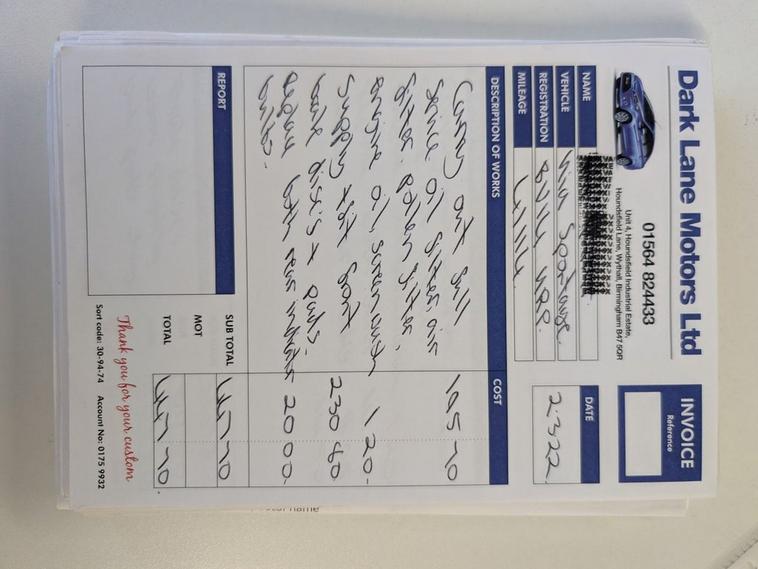 Dark Lane Motors Ltd
01564 824433
Unit 4, Houndsfield Industrial Estate,
Houndsfield Lane, Wythall, Birmingham B47 5QR
INVOICE
Reference
NAME
VEHICLE Kia Sportage.
REGISTRATION
MILEAGE
DATE
2.3.22.
DESCRIPTION OF WORKS COST
Carry out full 195 70
Service oil filter, air
filter. pollen filter,
engine oil, screen wash 1 20-
Supply + fit front 230 80
brake discs + pads.
Replace both rear 20 00.
bulbs.
REPORT
SUB TOTAL 447 70
MOT
TOTAL 447 70.
Thank you for your custom
Sort code: 30-94-74 Account No: 0175 9932